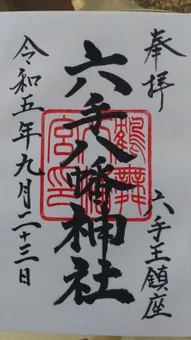 奉拝
六手王鎮座
六手八幡神社
令和五年九月二十三日